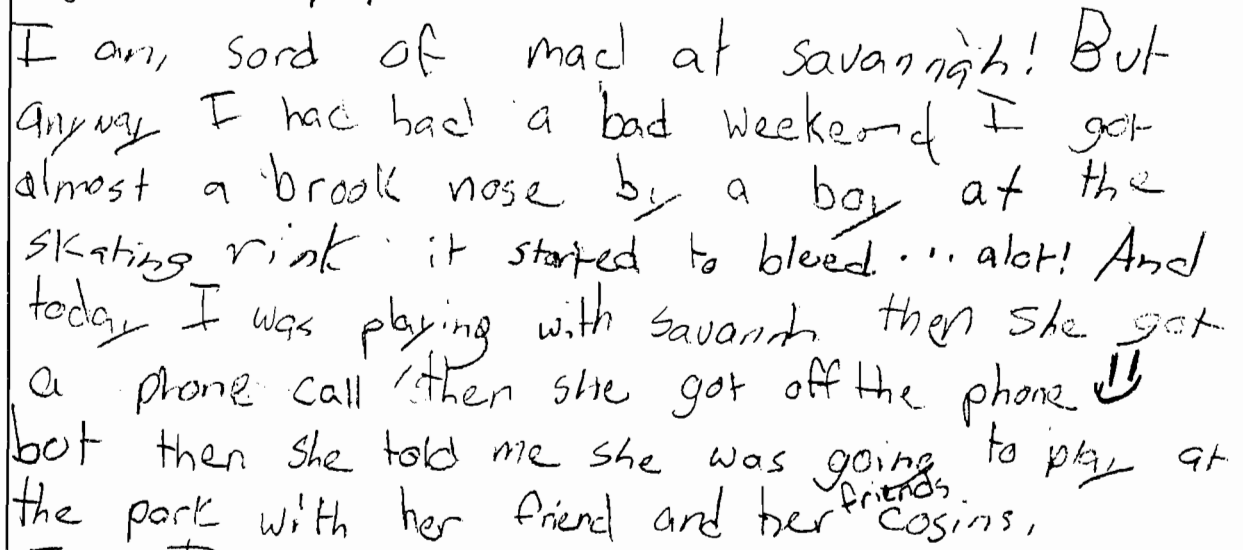 I am, sord of mad at savannah! But
anyway I had had a bad weekend I got
almost a brook nose by a boy at the
skating rink it started to bleed... alot! And
today I was playing with savannh then she got
a phone call then she got off the phone
bot then she told me she was going to play at
the park with her friend and her friends cosins,